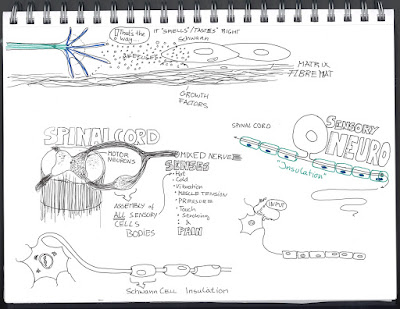 That's the way...
IT "SMELLS"/TASTES" RIGHT
SCHWANN
MATRIX
FIBRE MAT
GROWTH
FACTORS
SPINAL CORD
MOTOR
NEURONS
MIXED NERVE
SENSES
• Hot
• Cold
• Vibration
• MUSCLE TENSION
• PRESSURE
• Touch
• Stretching
&
PAIN
ASSEMBLY of
ALL SENSORY
CELLS
BODIES
SPINAL CORD
SENSORY
NEURO
"Insulation"
INPUT
SCHWANN CELL Insulation